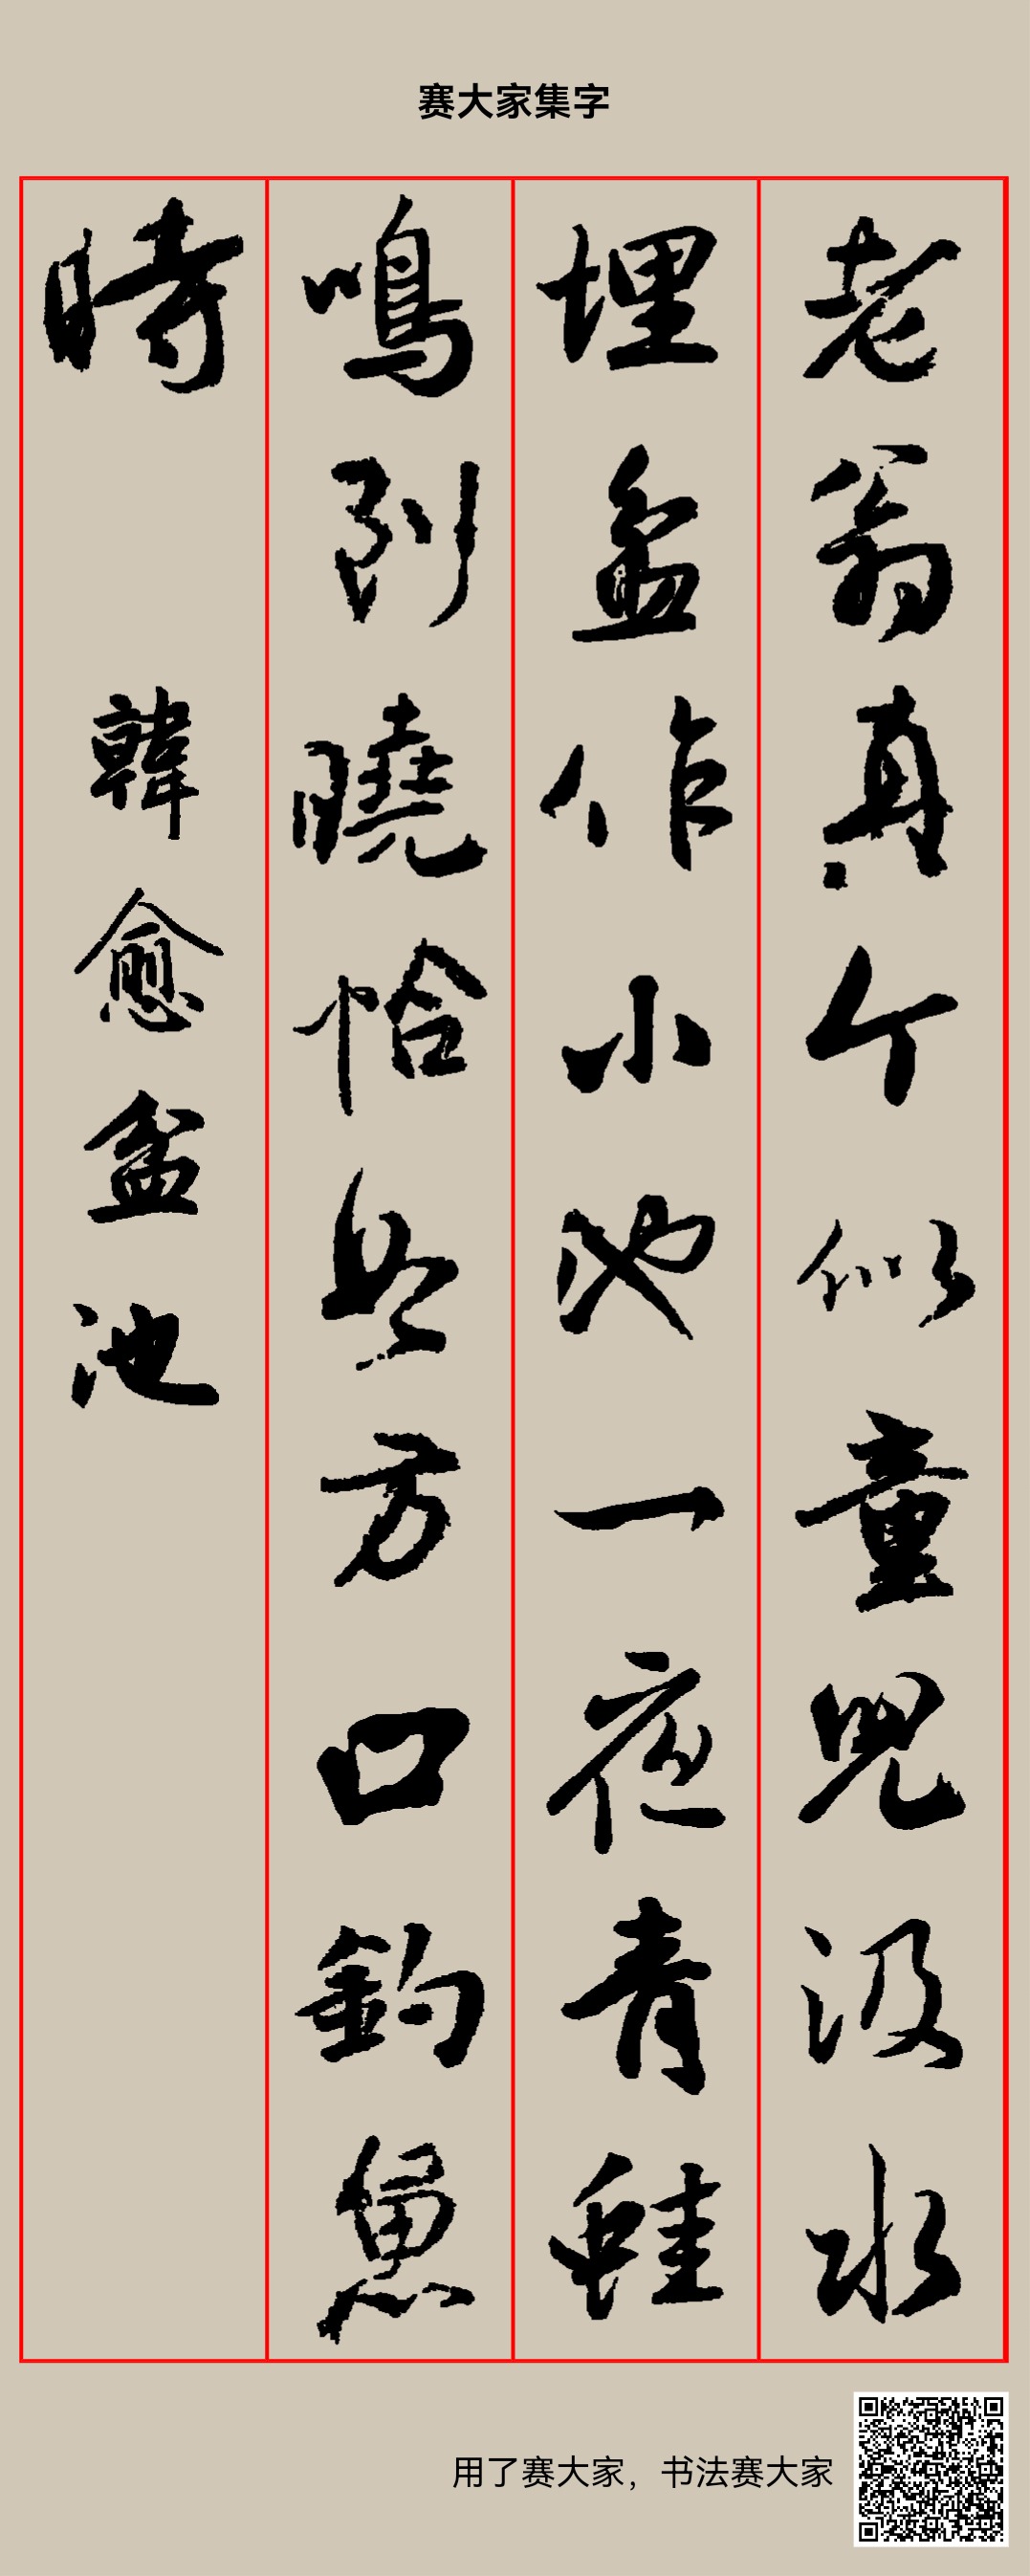 赛大家集字
老翁真个似童兒汲水
埋盆作小池一夜青蛙
鳴到曉恰如方口釣魚
時 韓愈盆池
用了赛大家，书法赛大家